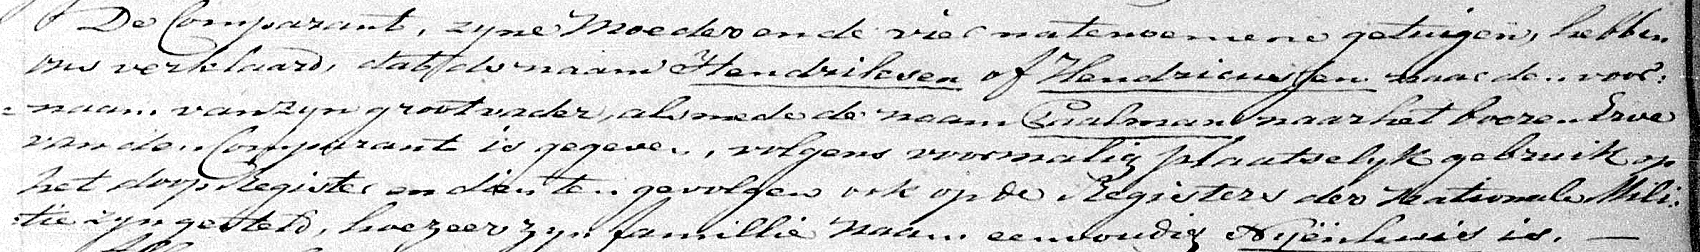 De Comparant, zyne Moeder en de vier natenoemene getuigen, hebben
ons verklaard, dat de naam Hendriksen of Hendricussen naar de voor:
=naam van zyn grootvader, alsmede de naam Paalman naar het boeren Erve
van den Comparant is gegeven, volgens voormalig plaatselyk gebruik op
het doop Register en dien ten gevolgen ook op de Registers der Nationale Mili:
:tie zyn gesteld, hoezeer zyn familie naam eenvoudig Nyënhuis is. —